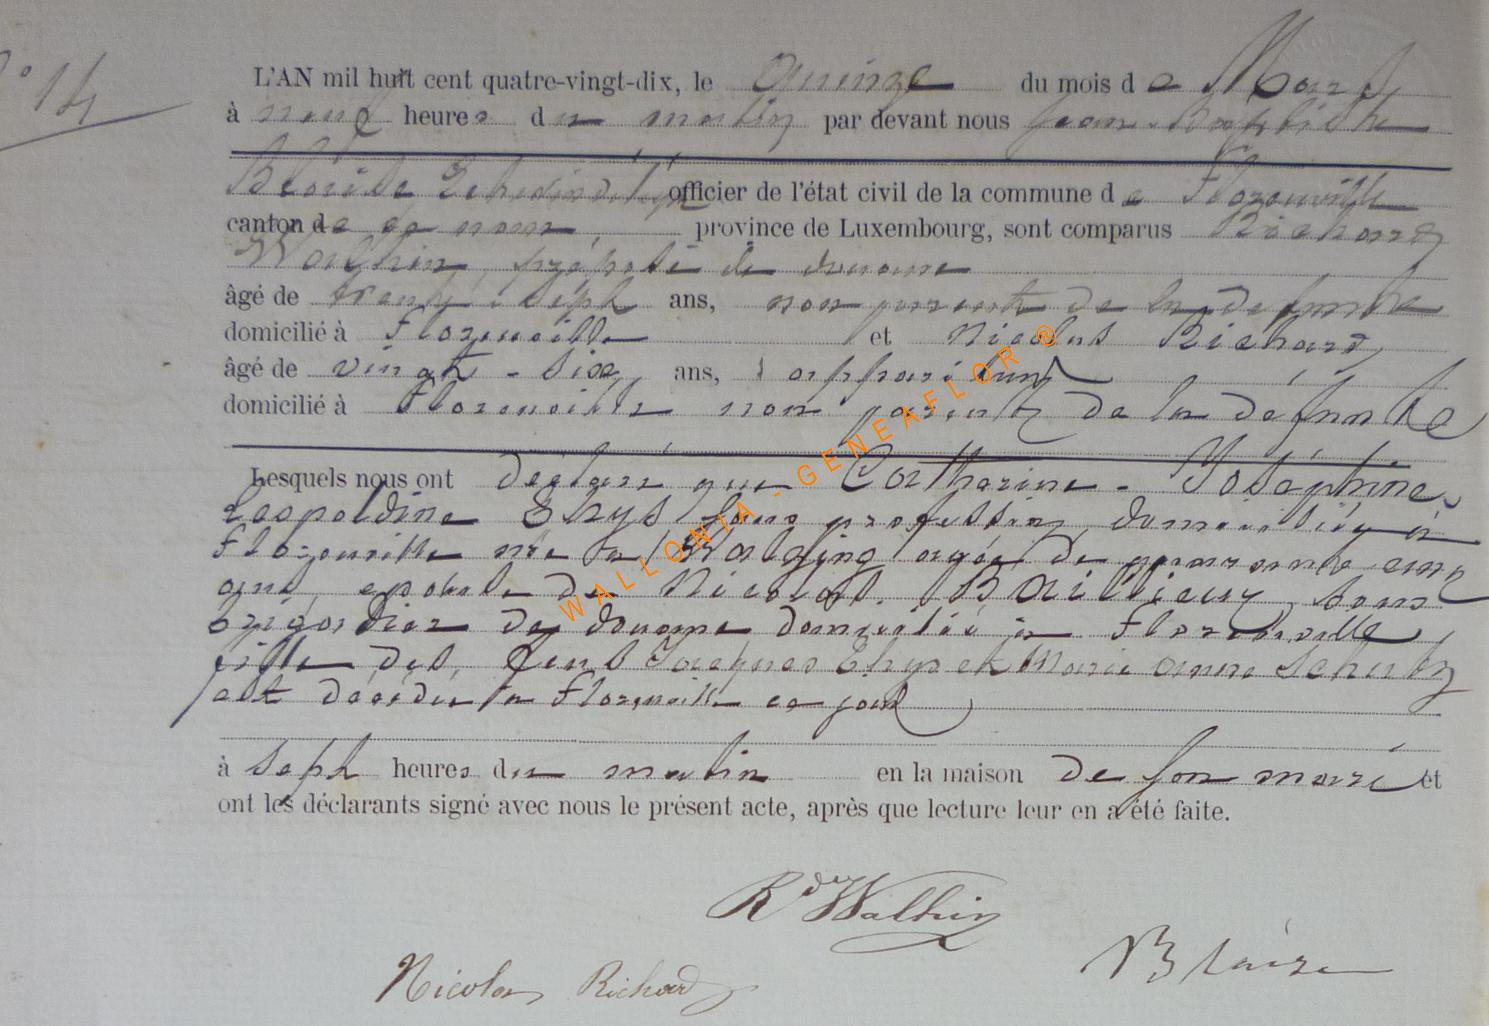 N° 14
L'AN mil huit cent quatre-vingt-dix, le quinze du mois de Mars
à neuf heures du matin par devant nous Jean-Baptiste
Blaise Echevin délégué officier de l'état civil de la commune de Florenville
canton de ce nom, province de Luxembourg, sont comparus Richard
Walhin, préposé de douane
âgé de trente-sept ans, non parent de la défunte
domicilié à Florenville et Nicolas Richard
âgé de vingt-six ans, appariteur
domicilié à Florenville non parent de la défunte
Lesquels nous ont déclaré que Catherine-Joséphine-
Léopoldine Thys sans profession, domiciliée à
Florenville née à Walzing agée de quarante cinq
ans, epouse de Nicolas Bailleux, sous
brigadier de douane domicilié à Florenville
fille des feus Jacques Thys et Marie Anne Schultz
est décédée à Florenville ce jour
à sept heures du matin en la maison de son mari et
ont les déclarants signé avec nous le présent acte, après que lecture leur en a été faite.
Rd Walhin
Nicolas Richard
Blaise
WALLONIA - GENEAFLOR ®